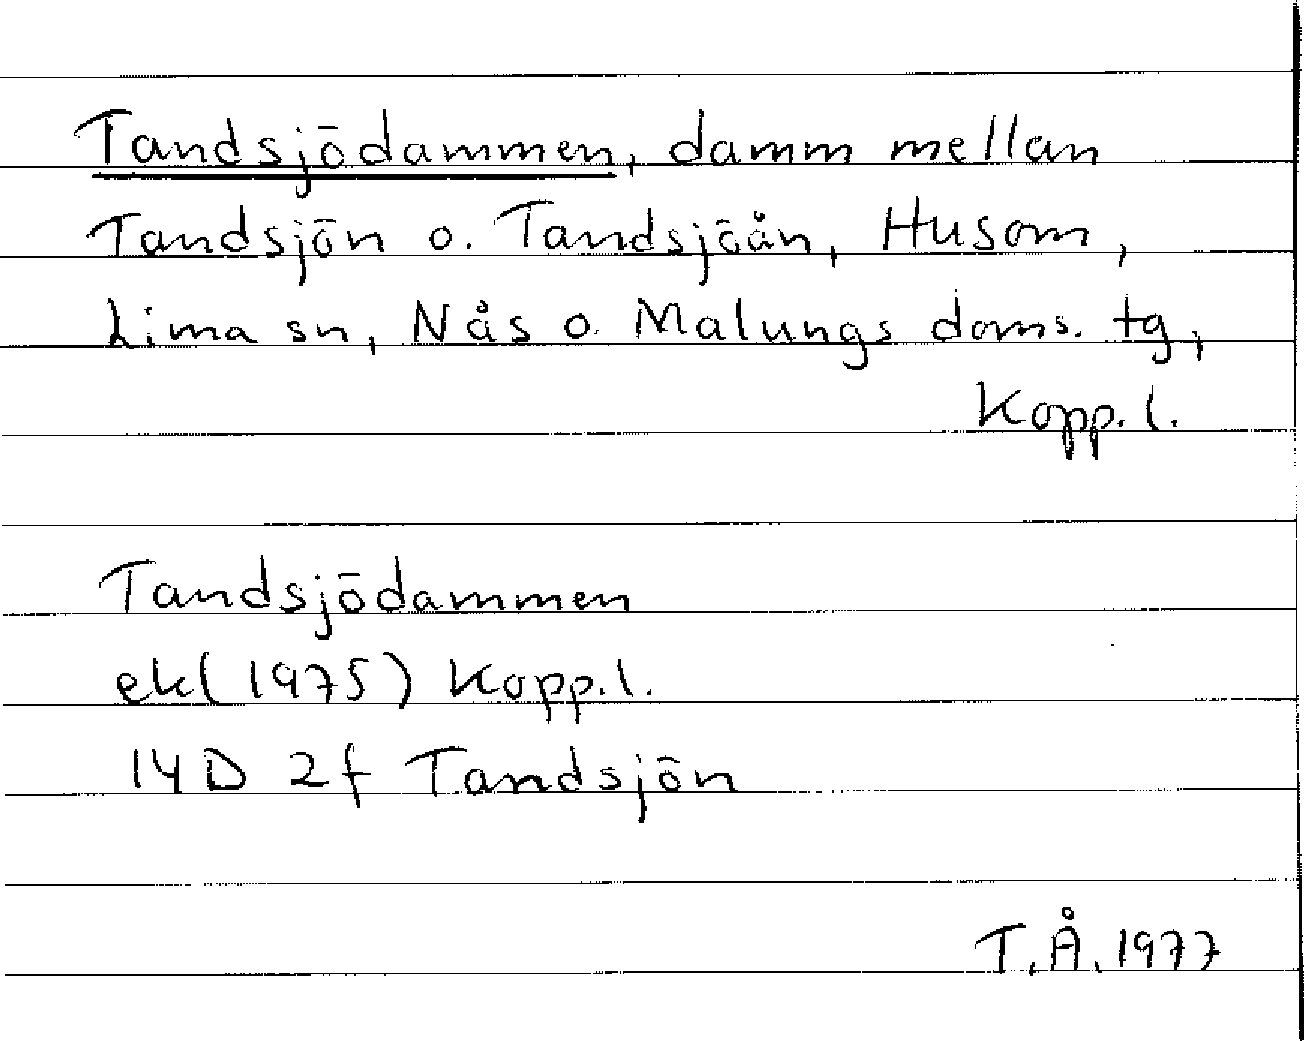 Tandsjödammen, damm mellan
Tandsjön o. Tandsjöån, Husom,
Lima sn, Nås o. Malungs doms. tg,
Kopp. l.
Tandsjödammen
ek(1975) Kopp. l.
14D 2f Tandsjön
T.Å. 1977